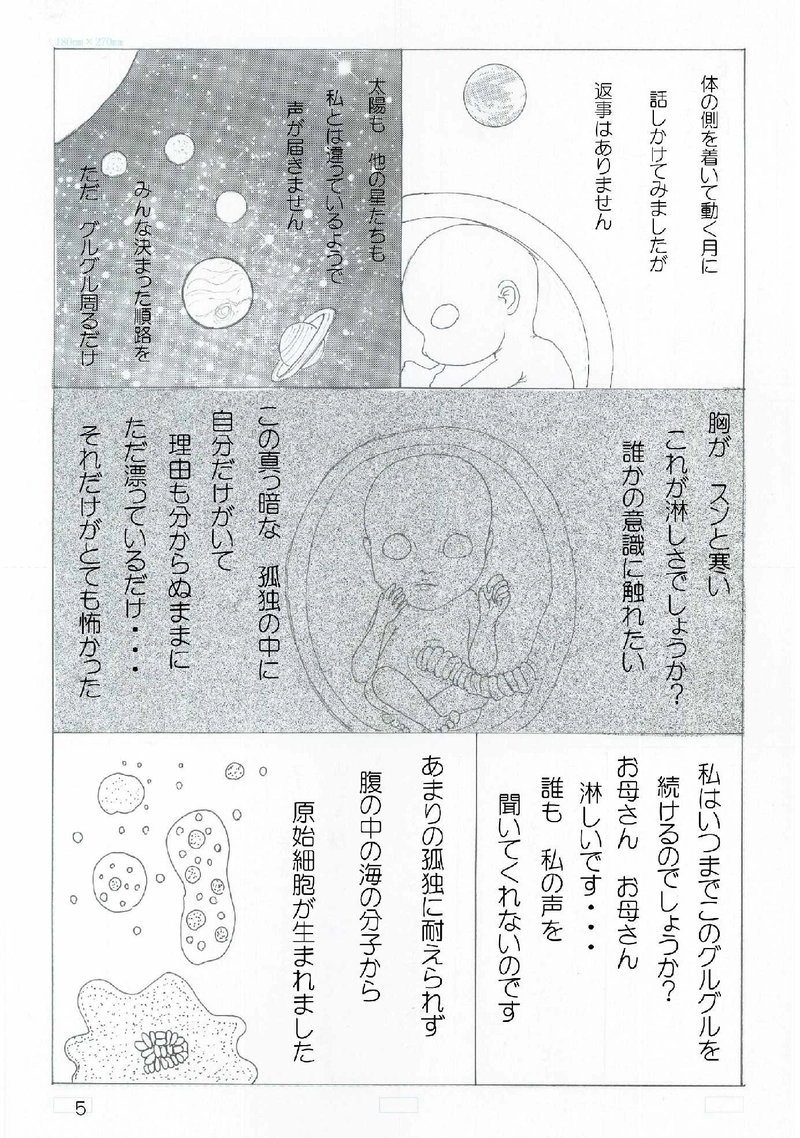 180mm×270mm
体の側を着いて動く月に
話しかけてみましたが
返事はありません
太陽も　他の星たちも
私とは違っているようで
声が届きません
みんな決まった順路を
ただ　グルグル周るだけ
胸が　スンと寒い
これが淋しさでしょうか?
誰かの意識に触れたい
この真っ暗な　孤独の中に
自分だけがいて
理由も分からぬままに
ただ漂っているだけ・・・
それだけがとても怖かった
私はいつまでこのグルグルを
続けるのでしょうか?
お母さん　お母さん
淋しいです・・・
誰も　私の声を
聞いてくれないのです
あまりの孤独に耐えられず
腹の中の海の分子から
原始細胞が生まれました
5